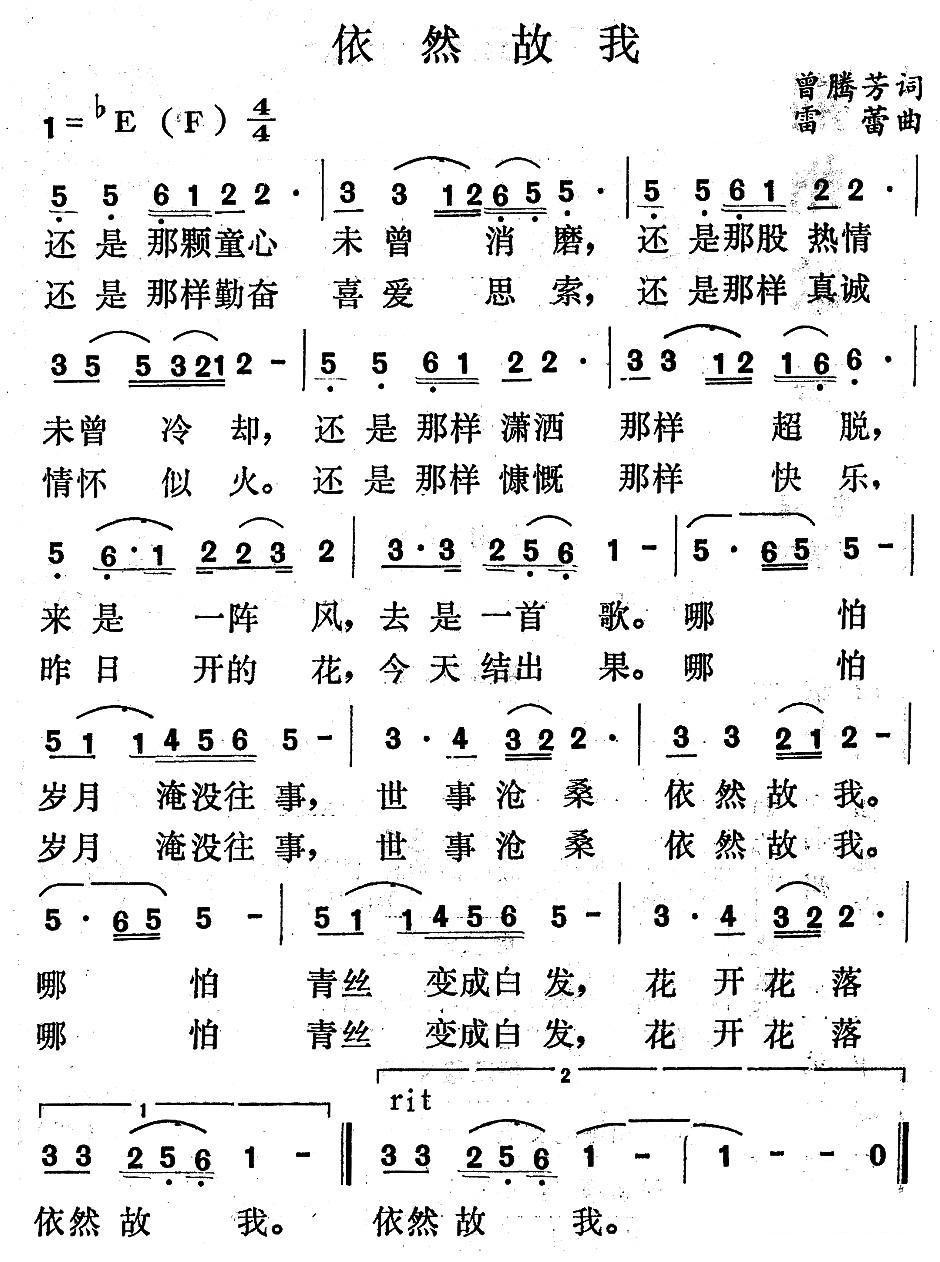 依然故我
曾腾芳词
1=♭E(F)4/4
雷蕾曲
5 5 6 1 2 2 · | 3 3 1 2 6 5 5 · | 5 5 6 1 2 2 · |
还是那颗童心 未曾 消磨, 还是那股热情
还是那样勤奋 喜爱 思索, 还是那样真诚
3 5 5 3 2 1 2 - | 5 5 6 1 2 2 · | 3 3 1 2 1 6 6 · |
未曾 冷却, 还是那样潇洒 那样 超脱,
情怀 似火。还是那样慷慨 那样 快乐,
5 6 · 1 2 2 3 2 | 3 · 3 2 5 6 1 - | 5 · 6 5 5 - |
来是 一阵 风, 去是一首 歌。哪 怕
昨日 开的 花, 今天结出 果。哪 怕
5 1 1 4 5 6 5 - | 3 · 4 3 2 2 · | 3 3 2 1 2 - |
岁月 淹没往事, 世事沧桑 依然故我。
岁月 淹没往事, 世事沧桑 依然故我。
5 · 6 5 5 - | 5 1 1 4 5 6 5 - | 3 · 4 3 2 2 · |
哪 怕 青丝 变成白发, 花开花落
哪 怕 青丝 变成白发, 花开花落
1 2
rit
3 3 2 5 6 1 - ‖ 3 3 2 5 6 1 - | 1 - - 0 ‖
依然故 我。 依然故 我。